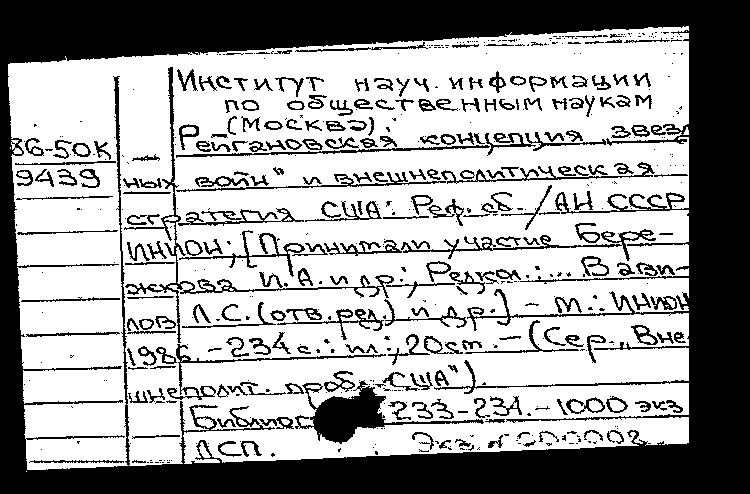 Институт науч. информации
по общественным наукам
(Москва).
86-50к — Рейгановская концепция „звезд
9439 ных войн" и внешнеполитическая
стратегия США: Реф. сб. / АН СССР,
ИНИОН; [Принимали участие Бере-
жкова И.А. и др.; Редкол.: ... Вави-
лов Л.С. (отв. ред.) и др.] – М.: ИНИОН
1986. – 234 с.: ил.; 20 см. – (Сер. „Вне-
шнеполит. проб. США").
Библиогр 233-234. – 1000 экз
ДСП. Экз. N 000002